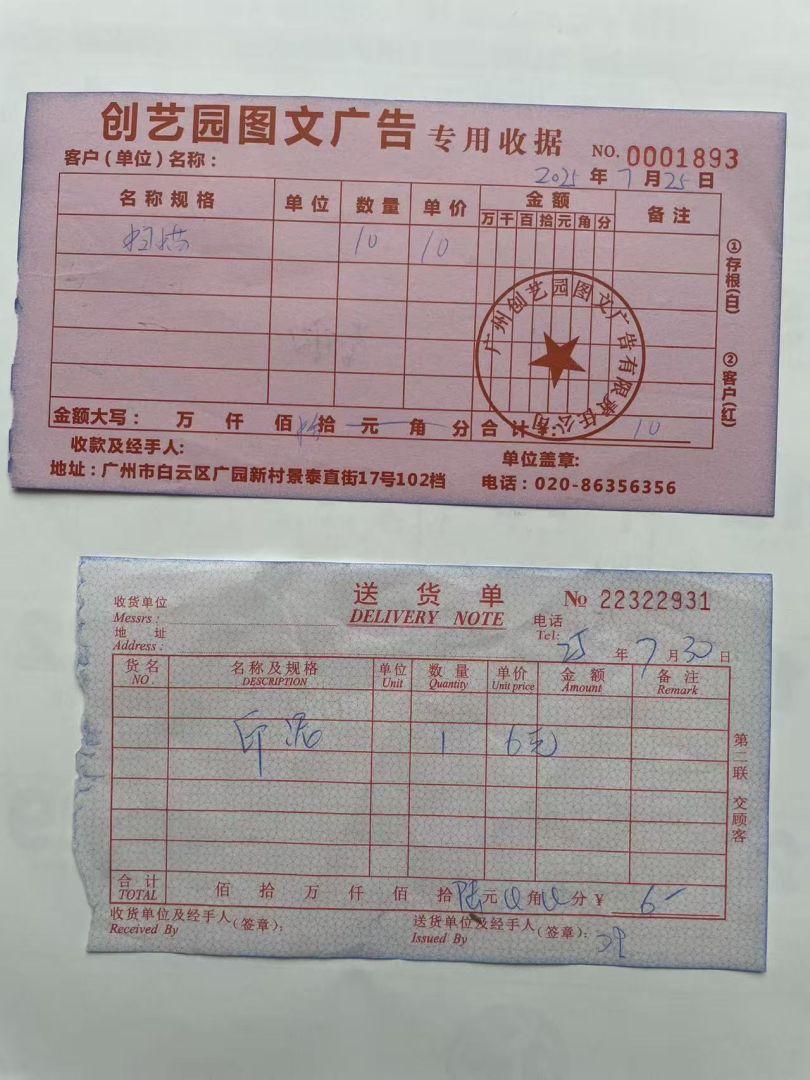 创艺园图文广告 专用收据 NO. 0001893
客户(单位)名称：
2025 年 7 月 25 日
名称规格 单位 数量 单价 金额 备注
万 千 百 拾 元 角 分
扫描 10 10
①存根(白)
②客户(红)
广州创艺园图文广告有限责任公司
金额大写： 万 仟 佰 拾 元 角 分 合计 10
收款及经手人： 单位盖章：
地址：广州市白云区广园新村景泰直街17号102档 电话：020-86356356
送货单 No 22322931
收货单位
Messrs :
DELIVERY NOTE
电话
Tel:
地址
Address :
25 年 7 月 30 日
货名 名称及规格 单位 数量 单价 金额 备注
NO. DESCRIPTION Unit Quantity Unit price Amount Remark
印泥 1 6元
第二联 交顾客
合计 佰 拾 万 仟 佰 拾 陆元 角 分 ¥ 6-
TOTAL
收货单位及经手人(签章)： 送货单位及经手人(签章)：
Received By Issued By